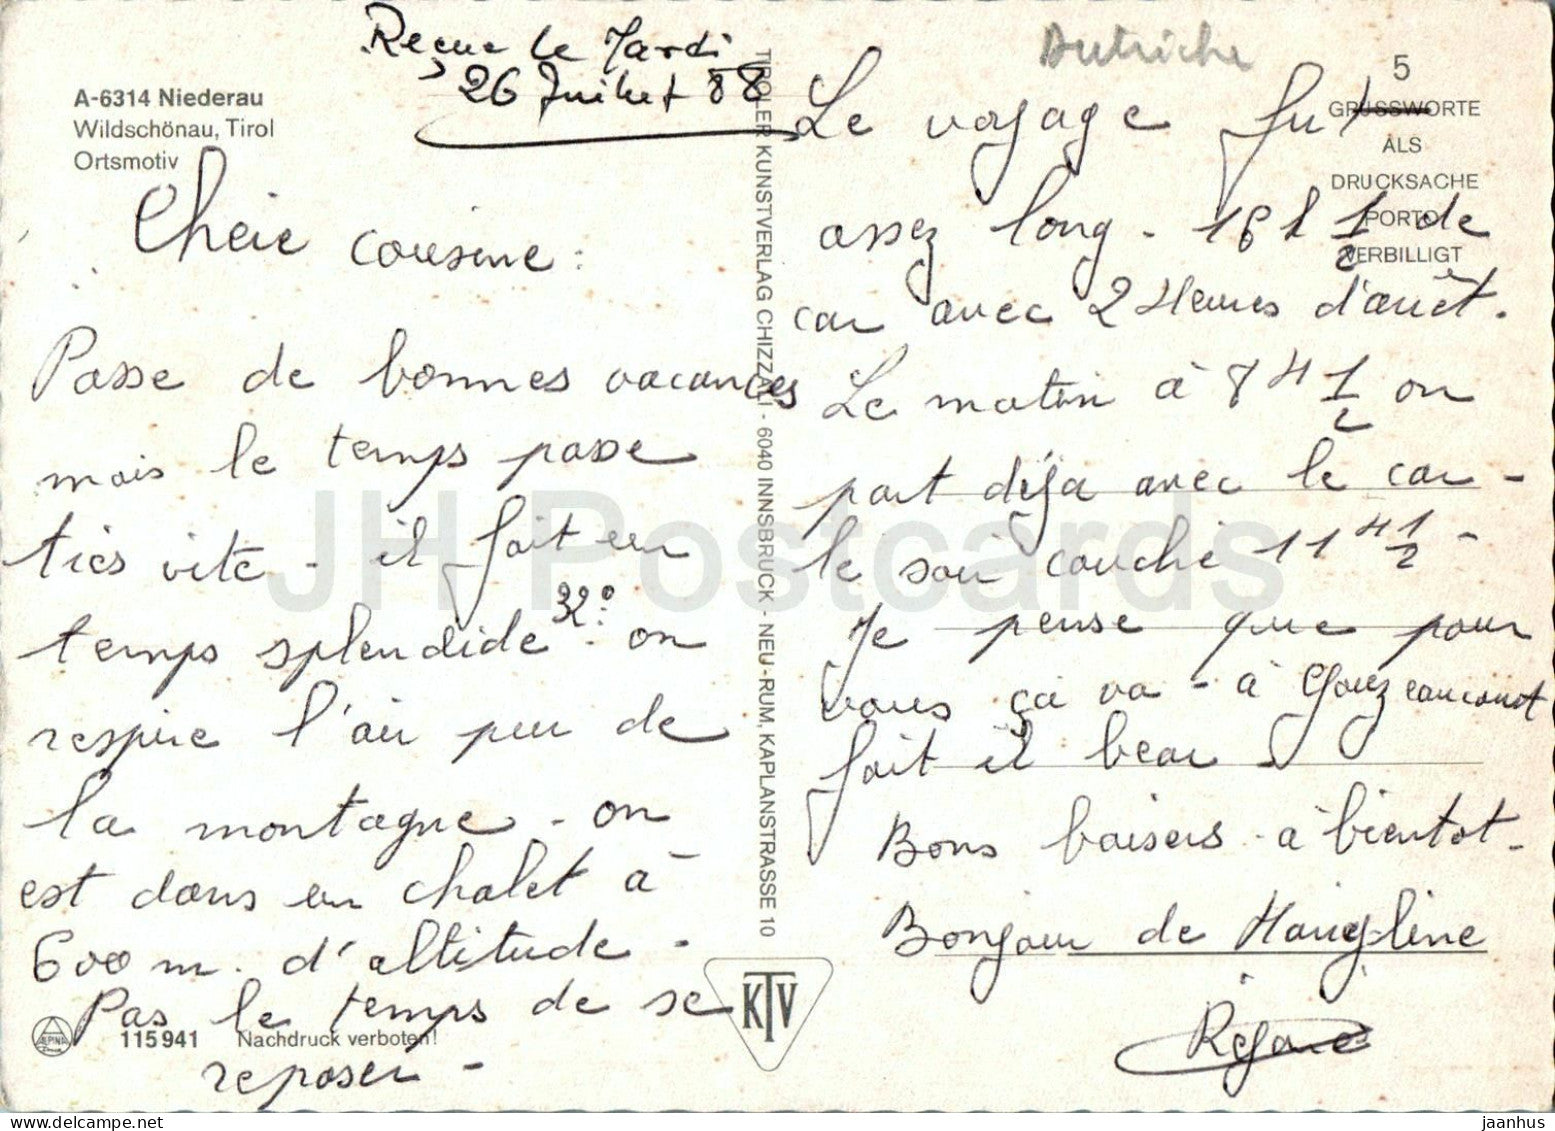 Reçue le Mardi
26 Juillet 88
Autriche
A-6314 Niederau
Wildschönau, Tirol
Ortsmotiv
Chère cousine :
Passe de bonnes vacances
mais le temps passe
très vite - il fait un
temps splendide 32° - on
respire l'air pur de
la montagne - on
est dans un chalet à
600 m. d'altitude -
Pas le temps de se
reposer -
115941 Nachdruck verboten!
ALPINA
TIROLER KUNSTVERLAG CHIZZALI - 6040 INNSBRUCK - NEU-RUM, KAPLANSTRASSE 10
KTV
5
GRUSSWORTE
ALS
DRUCKSACHE
PORTO
VERBILLIGT
Le voyage fut
assez long - 16 h 1/2 de
car avec 2 Heures d'arrêt.
Le matin à 8 H 1/2 on
part déja avec le car -
le soir couché 11 H 1/2 -
Je pense que pour
vous ça va - à Gouzeaucourt
fait il beau
Bons baisers - à bientot -
Bonjour de
Régane
JH Postcards
jaanhus
www.delcampe.net